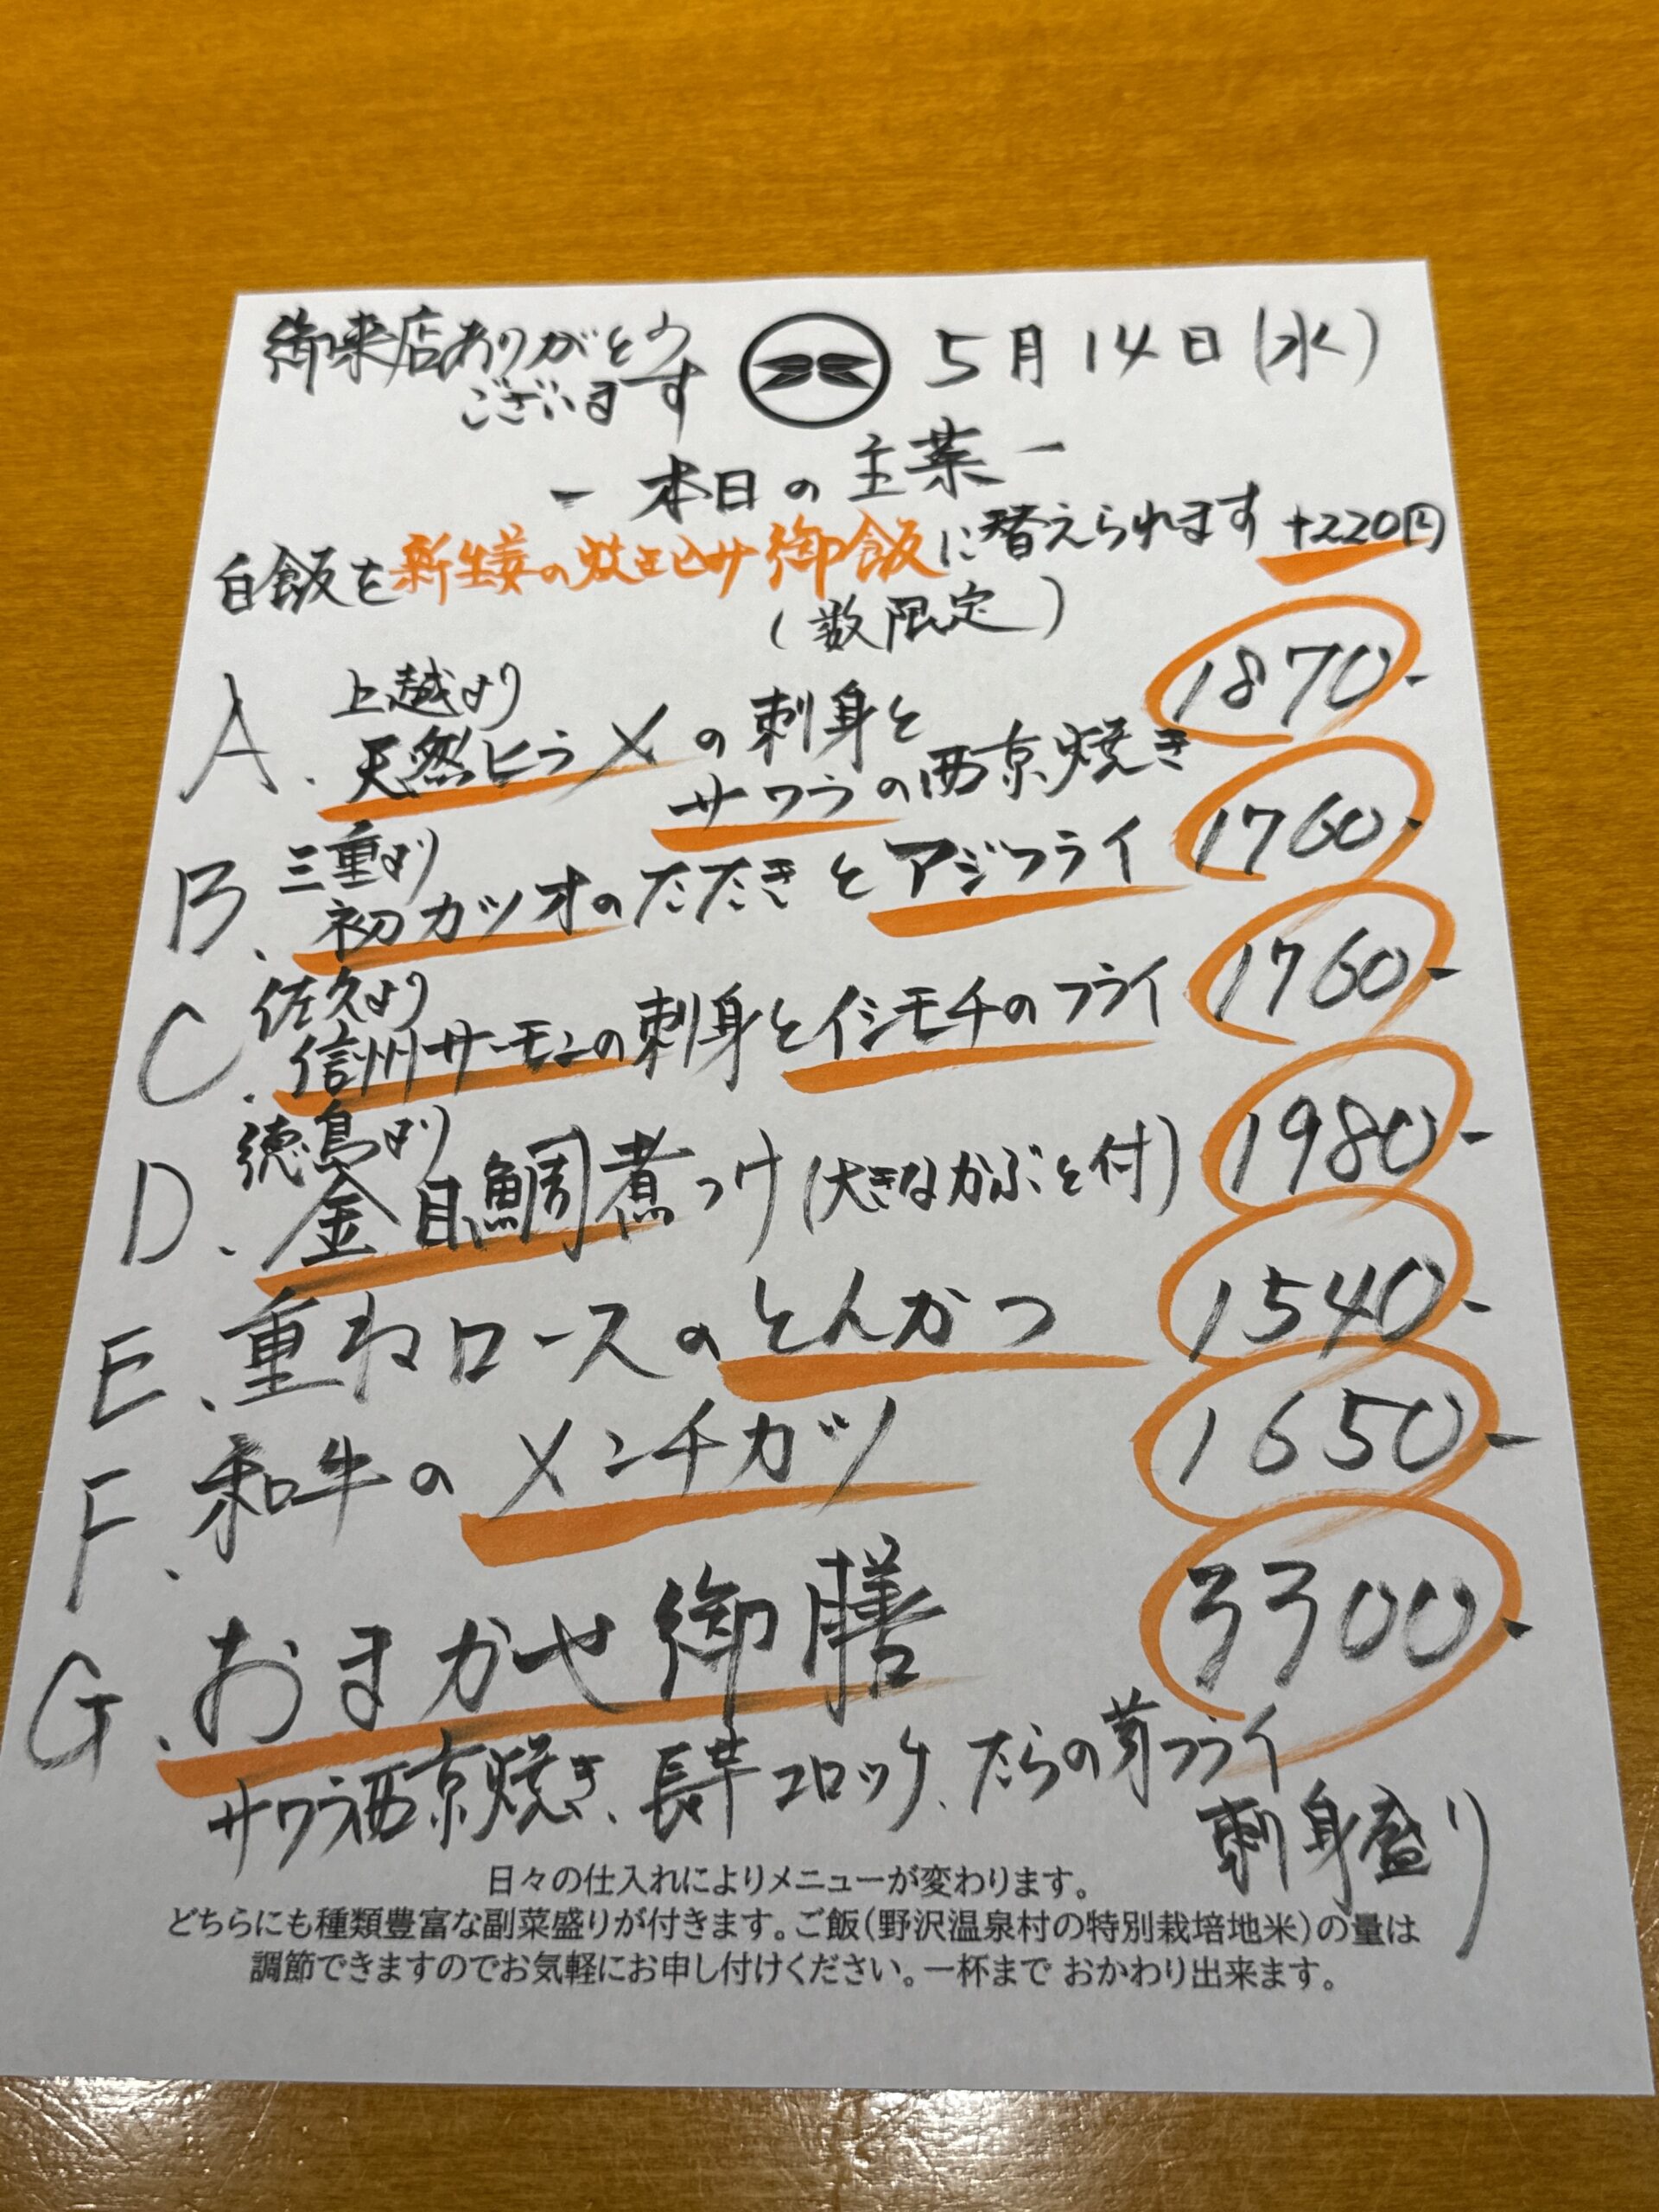 御来店ありがとう
ございます
5月14日(水)
- 本日の主菜 -
白飯を新生姜の炊き込み御飯に替えられます +220円
(数限定)
A. 上越より
天然ヒラメの刺身と
サワラの西京焼き 1870-
B. 三重より
初ガツオのたたきとアジフライ 1760-
C. 佐久より
信州サーモンの刺身とイシモチのフライ 1760-
D. 徳島より
金目鯛煮つけ(大きなかぶと付) 1980-
E. 重ねロースのとんかつ 1540-
F. 和牛のメンチカツ 1650-
G. おまかせ御膳 3300-
サワラ西京焼き、長芋コロッケ、たらの芽フライ
刺身盛り
日々の仕入れによりメニューが変わります。
どちらにも種類豊富な副菜盛りが付きます。ご飯(野沢温泉村の特別栽培地米)の量は
調節できますのでお気軽にお申し付けください。一杯まで おかわり出来ます。